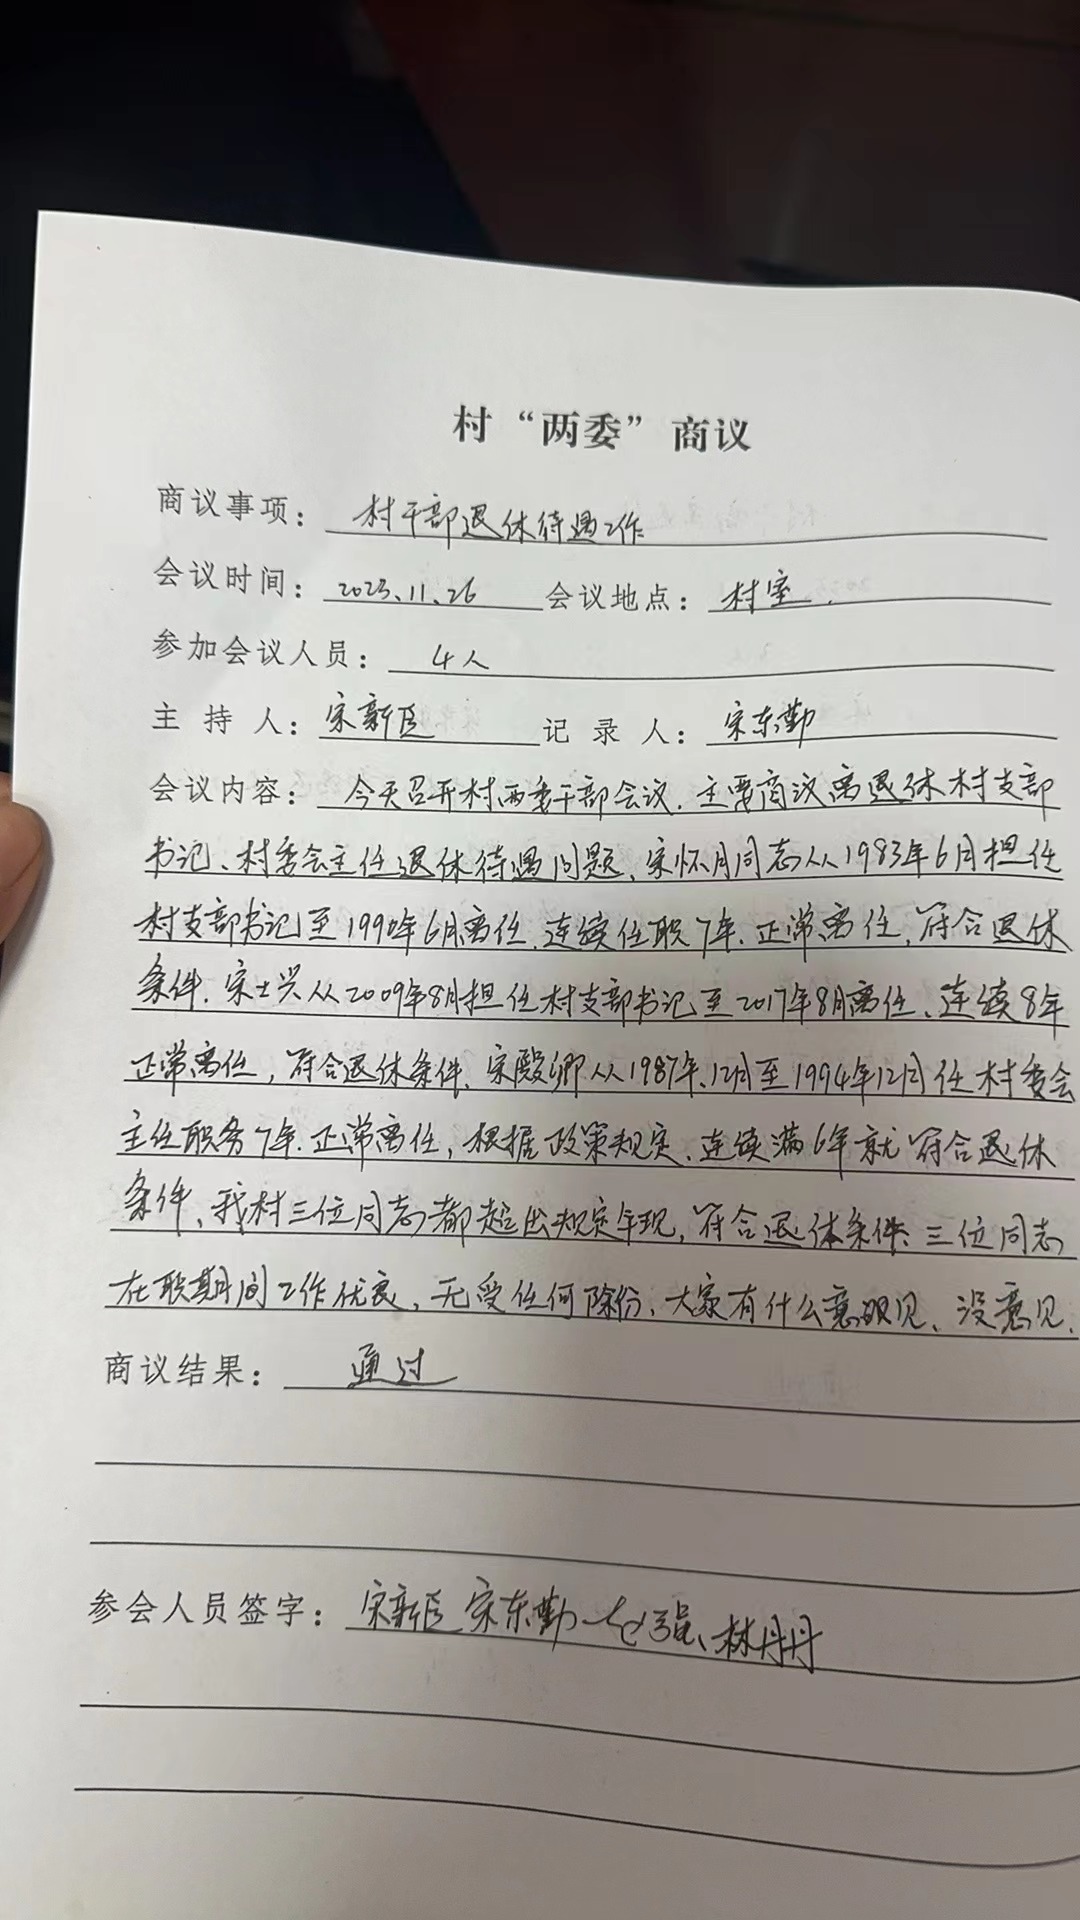 村“两委”商议
商议事项：村干部退休待遇工作
会议时间：2023.11.26 会议地点：村室.
参加会议人员：4人
主持人：宋新臣 记录人：宋东勤
会议内容：今天召开村两委干部会议.主要商议离退休村支部
书记、村委会主任退休待遇问题、宋怀月同志从1983年6月担任
村支部书记至1990年6月离任.连续任职7年.正常离任,符合退休
条件.宋士兴从2009年8月担任村支部书记至2017年8月离任、连续8年
正常离任，符合退休条件.宋殿卿从1987年.12月至1994年12月任村委会
主任职务7年.正常离任，根据政策规定.连续满6年就符合退休
条件、我村三位同志都超出规定年现,符合退休条件.三位同志
在职期间工作优良、无受任何除份、大家有什么意见、没意见.
商议结果：通过
参会人员签字：宋新臣 宋东勤 强、林丹丹